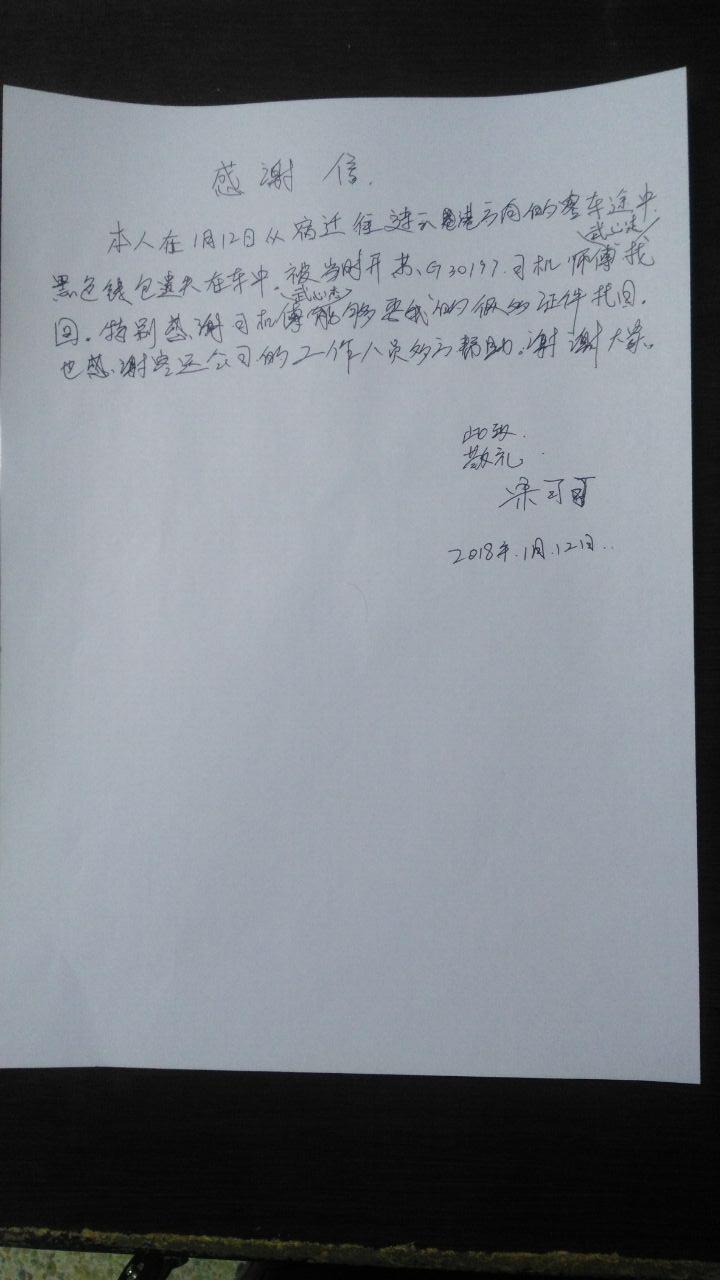 感谢信.
本人在1月12日从宿迁往连云港方向的客车途中
黑色钱包遗失在车中.被当时开苏G30197.司机师傅武心志找
回.特别感谢司机傅武心志能够要我的很多证件找回.
也感谢客运公司的工作人员的帮助.谢谢大家.
此致.
敬礼.
梁可可
2018年.1月.12日..